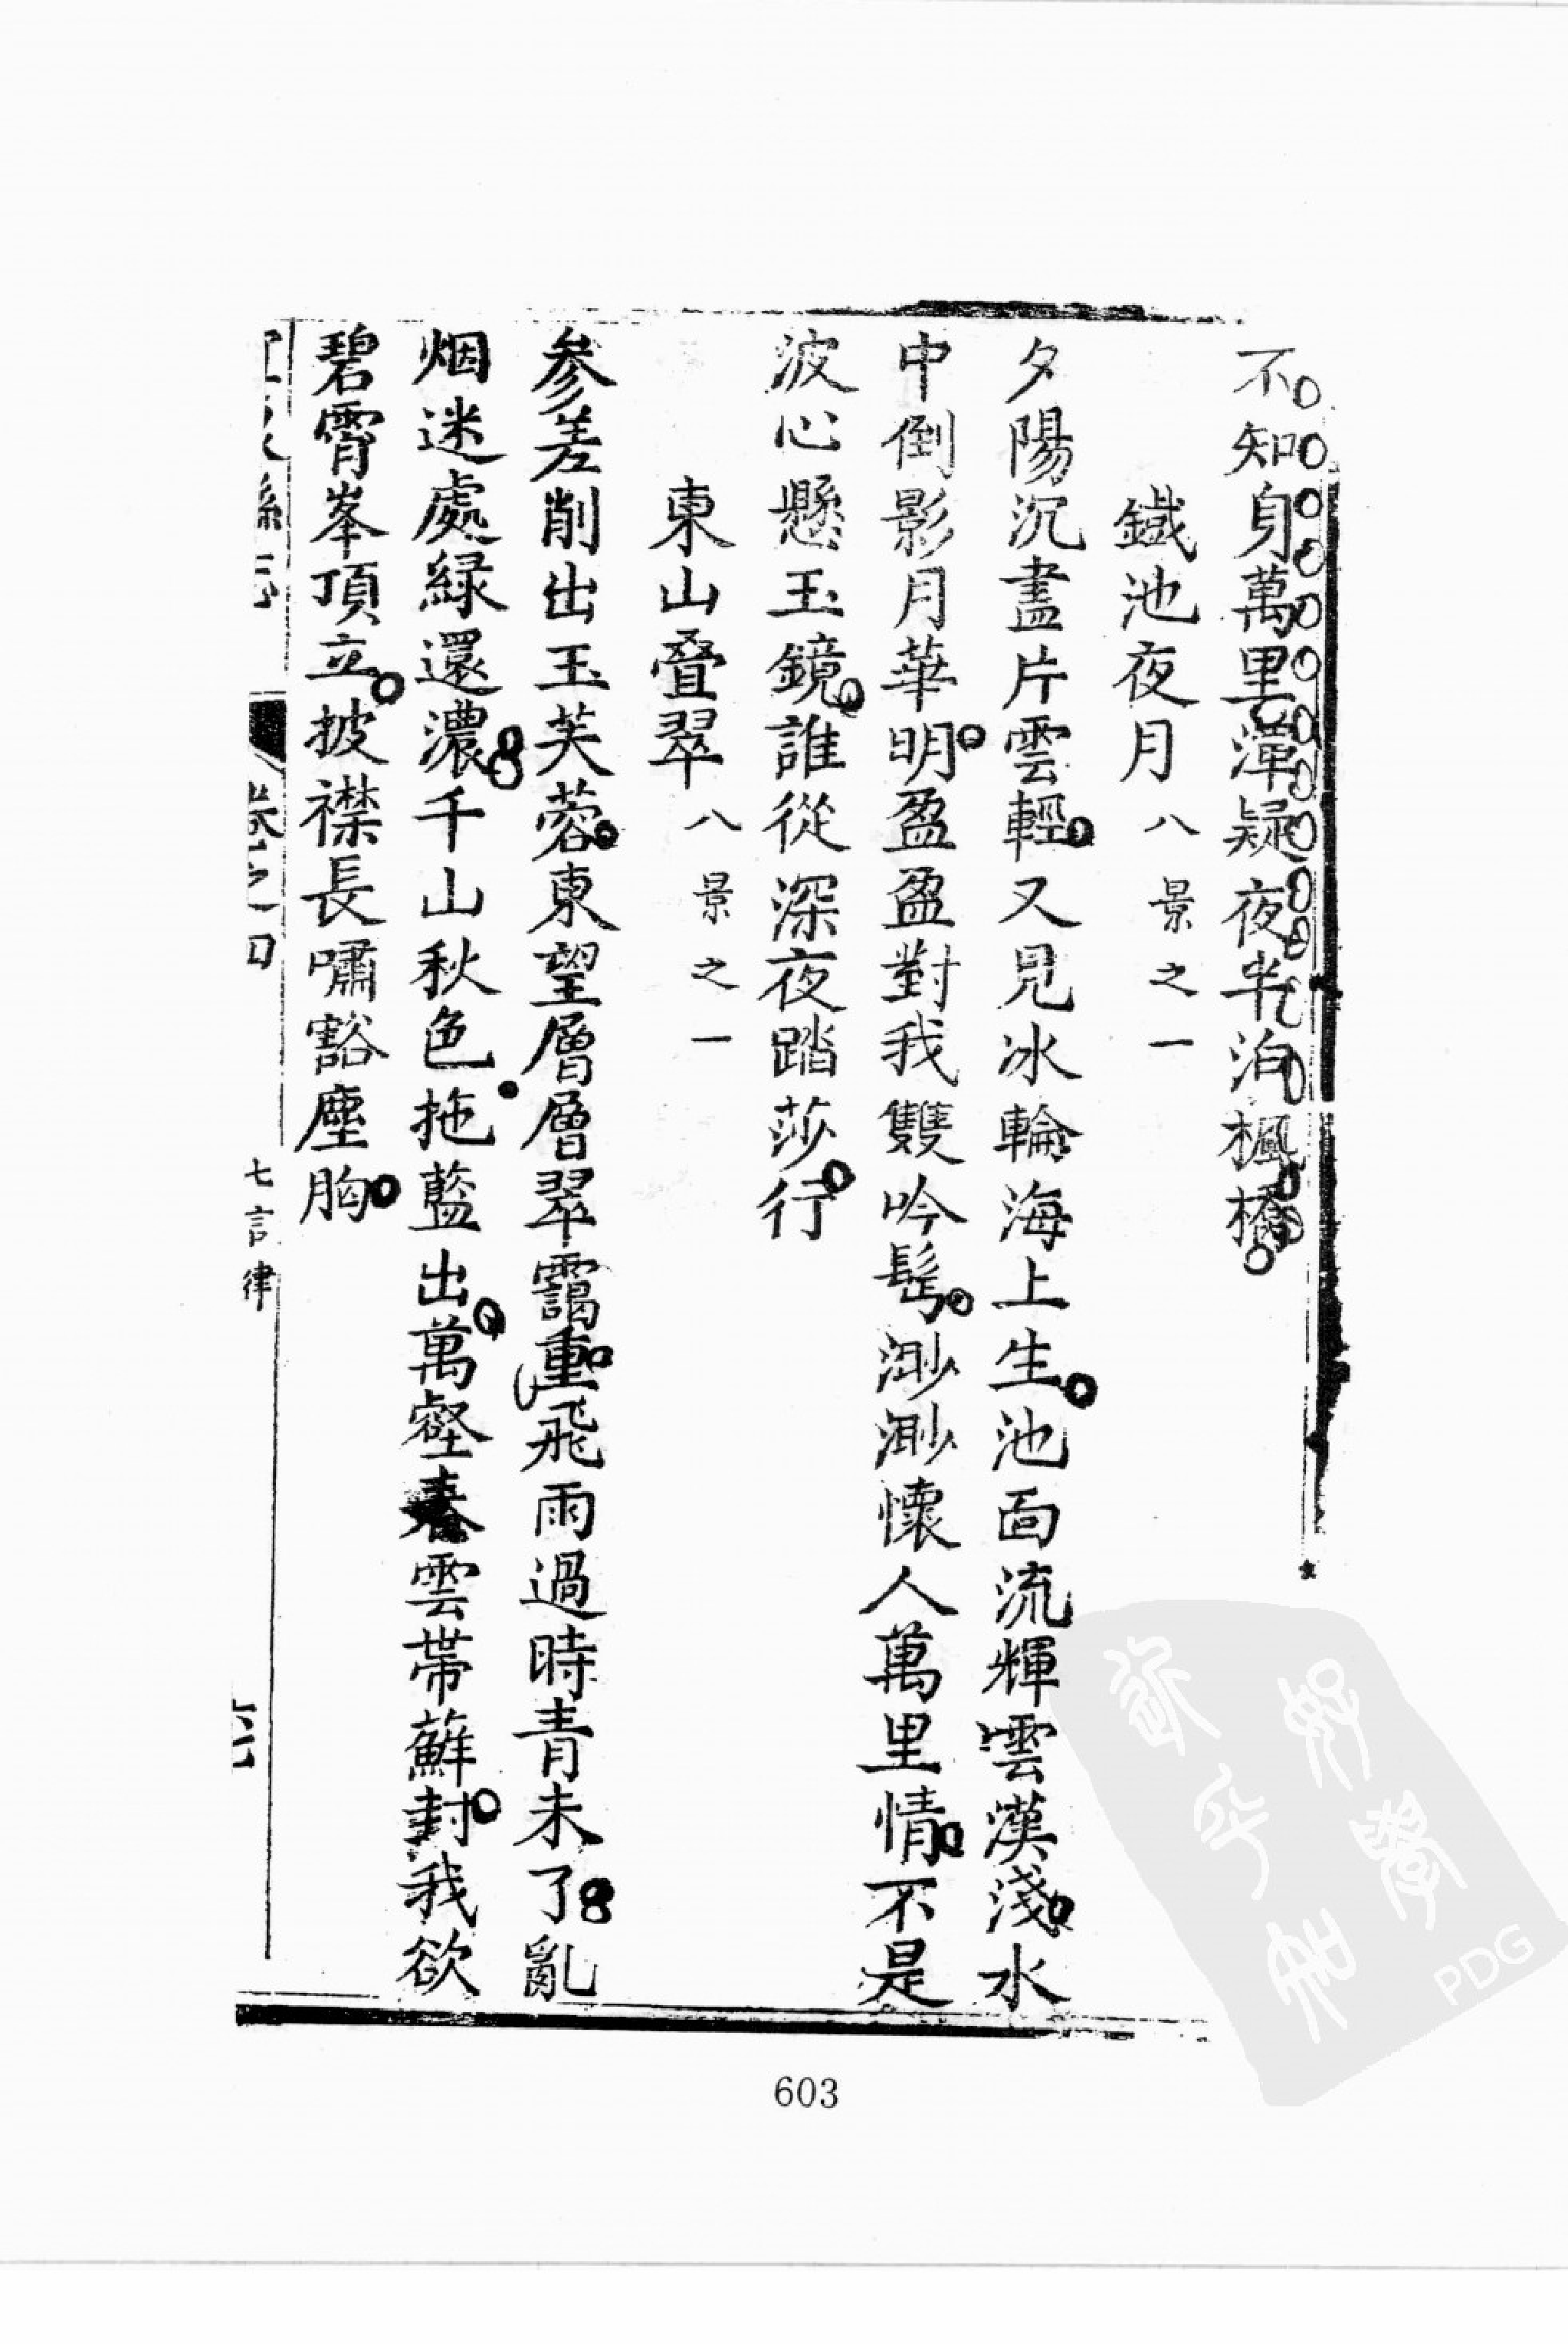 不知身萬里潭疑夜半泊楓橋
鐵池夜月八景之一
夕陽沉盡片雲輕又見冰輪海上生池面流輝雲漢淺水
中倒影月華明盈盈對我雙吟髩渺渺懷人萬里情不是
波心懸玉鏡誰從深夜踏莎行
東山叠翠八景之一
參差削出玉芙蓉東望層層翠靄重飛雨過時青未了亂
烟迷處綠還濃千山秋色拖藍出萬壑春雲帶蘚封我欲
碧霄峯頂立披襟長嘯豁塵胸
卷之四 七言律
603
PDG